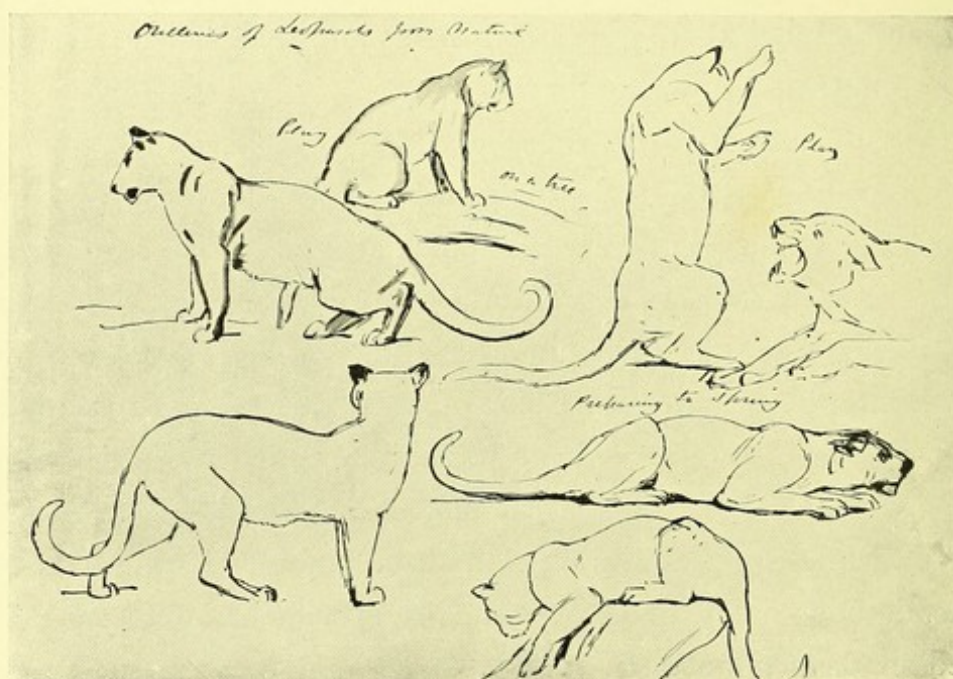 Outlines of Leopards from Nature
Play
on a tree
Play
Preparing to Spring